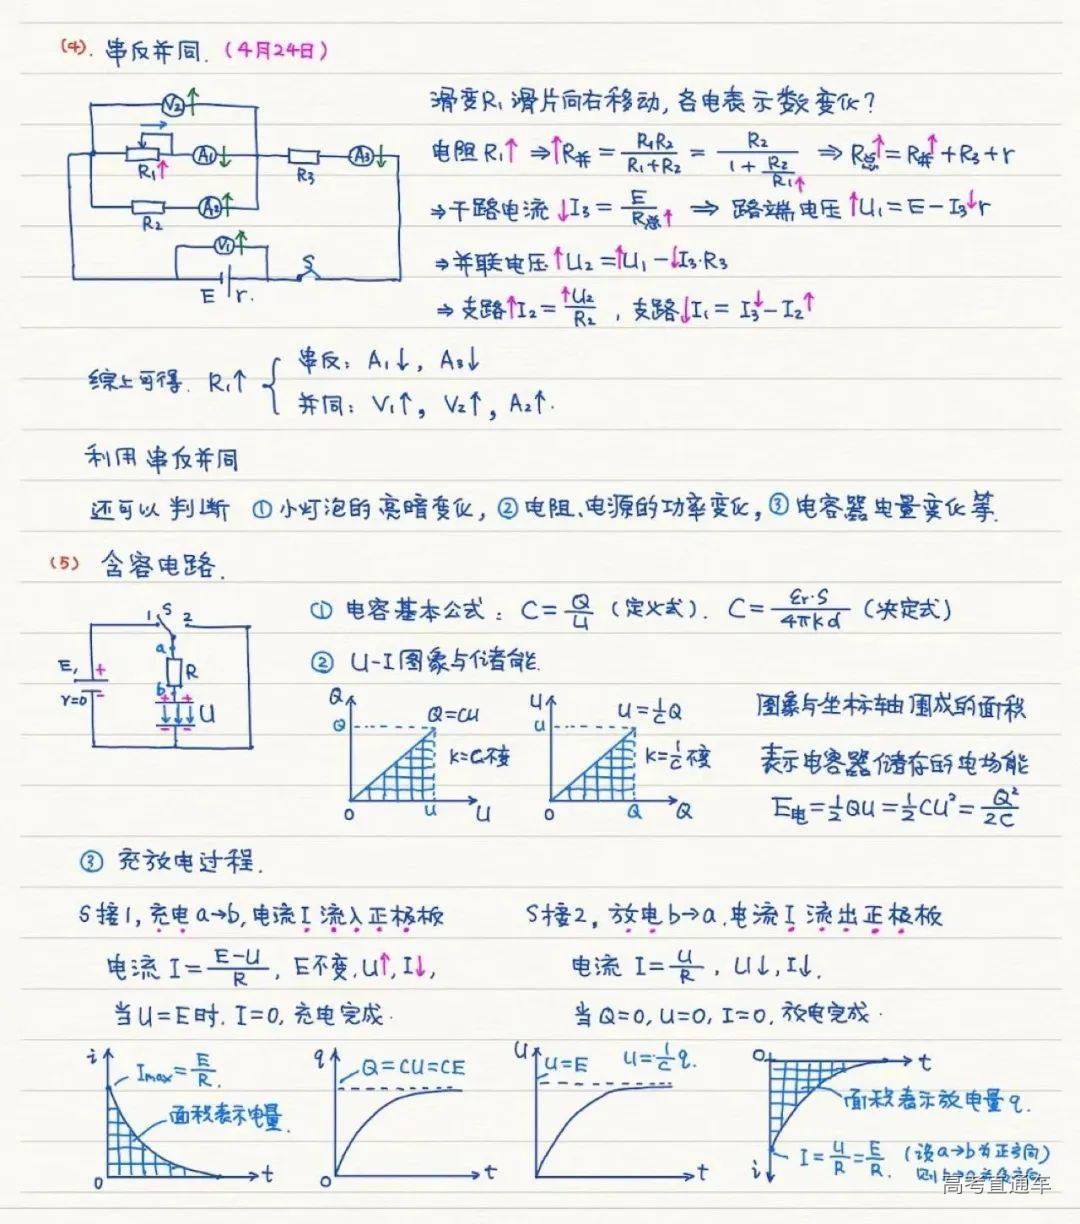 (4). 串反并同. (4月24日)
滑变R₁滑片向右移动,各电表示数变化?
V₂↑
R₁↑ A₁↓ R₃ A₃↓
R₂ A₂↑
V₁↑
E r. S
电阻R₁↑ ⇒ ↑R并 = R₁R₂/(R₁+R₂) = R₂/(1+R₂/R₁↑) ⇒ R总↑ = R并↑+R₃+r
⇒干路电流 ↓I₃ = E/R总↑ ⇒ 路端电压 ↑U₁ = E-I₃↓r
⇒并联电压↑U₂ = ↑U₁-↓I₃·R₃
⇒支路↑I₂ = ↑U₂/R₂ , 支路↓I₁ = I₃↓-I₂↑
综上可得. R₁↑ {
串反: A₁↓, A₃↓
并同: V₁↑, V₂↑, A₂↑.
利用 串反并同
还可以 判断 ①小灯泡的亮暗变化, ②电阻、电源的功率变化, ③电容器电量变化等.
(5) 含容电路.
1 S 2
a
E, + R
r=0 - b
+ + + U
- - -
① 电容基本公式: C = Q/U (定义式). C = εr·S/4πkd (决定式)
② U-I图象与储能.
Q Q Q=CU k=C不变 0 U U
U U U=1/C Q k=1/C不变 0 Q Q
图象与坐标轴围成的面积
表示电容器储存的电场能
E电 = 1/2QU = 1/2CU² = Q²/2C
③ 充放电过程.
S接1, 充电a→b, 电流I 流入正极板
电流 I = (E-U)/R, E不变, U↑, I↓,
当U=E时. I=0, 充电完成.
S接2, 放电b→a. 电流I 流出正极板
电流 I = U/R, U↓, I↓.
当Q=0, U=0, I=0, 放电完成.
i Imax = E/R. 面积表示电量. 0 t
q Q=CU=CE 0 t
U U=E U=1/C q. t
0 t 面积表示放电量q.
i I = U/R = E/R. (设a→b为正方向)
高考直通车